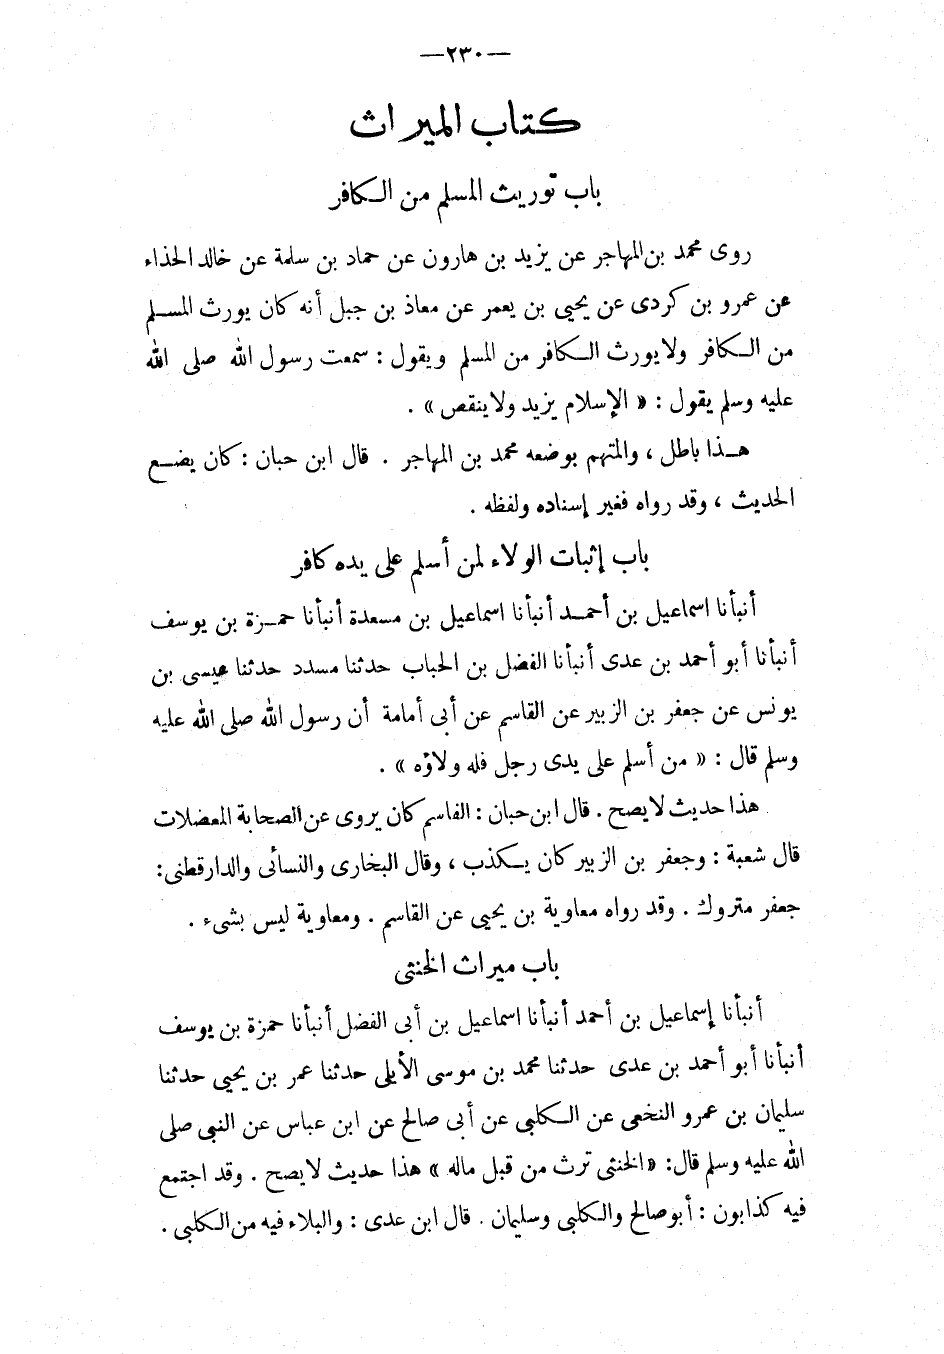 —٢٣٠—
كتاب الميراث
باب توريث المسلم من الكافر
روى محمد بن المهاجر عن يزيد بن هارون عن حماد بن سلمة عن خالد الحذاء
عن عمرو بن كردى عن يحيى بن يعمر عن معاذ بن جبل أنه كان يورث المسلم
من الكافر ولا يورث الكافر من المسلم ويقول : سمعت رسول الله صلى الله
عليه وسلم يقول : « الإسلام يزيد ولا ينقص » .
هذا باطل ، والمتهم بوضعه محمد بن المهاجر . قال ابن حبان : كان يضع
الحديث ، وقد رواه فغير إسناده ولفظه .
باب إثبات الولاء لمن أسلم على يده كافر
أنبأنا اسماعيل بن أحمد أنبأنا اسماعيل بن مسعدة أنبأنا حمزة بن يوسف
أنبأنا أبو أحمد بن عدى أنبأنا الفضل بن الحباب حدثنا مسدد حدثنا عيسى بن
يونس عن جعفر بن الزبير عن القاسم عن أبى أمامة أن رسول الله صلى الله عليه
وسلم قال : « من أسلم على يدى رجل فله ولاؤه » .
هذا حديث لا يصح . قال ابن حبان : القاسم كان يروى عن الصحابة المعضلات
قال شعبة : وجعفر بن الزبير كان يكذب ، وقال البخارى والنسائى والدارقطنى :
جعفر متروك . وقد رواه معاوية بن يحيى عن القاسم . ومعاوية ليس بشىء .
باب ميراث الخنثى
أنبأنا إسماعيل بن أحمد أنبأنا اسماعيل بن أبى الفضل أنبأنا حمزة بن يوسف
أنبأنا أبو أحمد بن عدى حدثنا محمد بن موسى الأيلى حدثنا عمر بن يحيى حدثنا
سليمان بن عمرو النخعى عن الكلبى عن أبى صالح عن ابن عباس عن النبى صلى
الله عليه وسلم قال : «الخنثى ترث من قبل ماله » هذا حديث لا يصح . وقد اجتمع
فيه كذابون : أبو صالح والكلبى وسليمان . قال ابن عدى : والبلاء فيه من الكلبى .